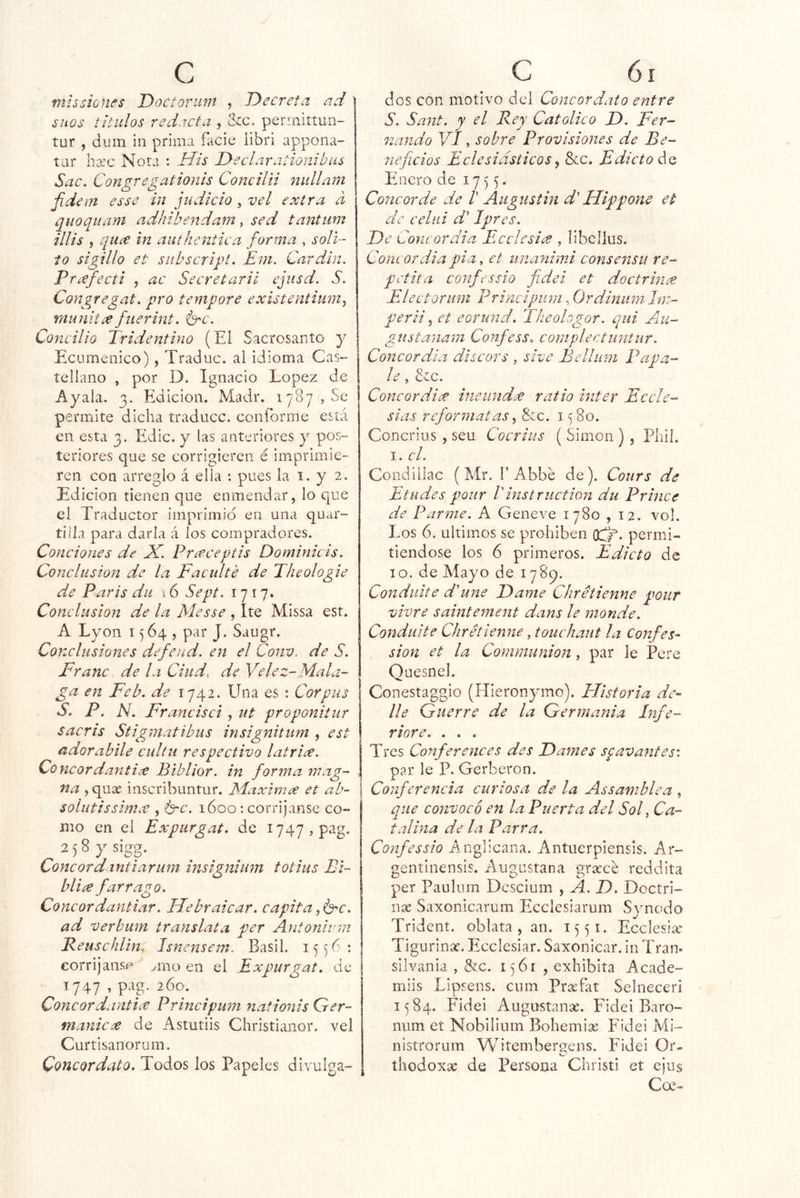 C
missiones Doctorum , Decreta ad
suos titulos redacta , &c. permittun-
tur , dum in prima facie libri appona-
tur hæc Nota : His Declarationibus
Sac. Congregationis Concilii nullam
fidem esse in judicio , vel extra á
quoquam adhibendam , sed tantum
illis , quæ in authentica forma , soli-
to sigillo et subscript. Em. Cardin.
Præfecti , ac Secretarii ejusd. S.
Congregat. pro tempore existentium,
munitæ fuerint. &c.
Concilio Tridentino (El Sacrosanto y
Ecumenico) , Traduc. al idioma Cas-
tellano , por D. Ignacio Lopez de
Ayala. 3. Edicion. Madr. 1787 , Se
permite dicha traducc. conforme está
en esta 3. Edic. y las anteriores y pos-
teriores que se corrigieren é imprimie-
ren con arreglo á ella : pues la 1. y 2.
Edicion tienen que enmendar, lo que
el Traductor imprimió en una quar-
tilla para darla á los compradores.
Conciones de X. Præceptis Dominicis.
Conclusion de la Facultè de Theologie
de Paris du 16 Sept. 1717.
Conclusion de la Messe , Ite Missa est.
A Lyon 1564 , par J. Saugr.
Conclusiones defend. en el Conv. de S.
Franc. de la Ciud. de Velez-Mala-
ga en Feb. de 1742. Una es : Corpus
S. P. N. Francisci , ut proponitur
sacris Stigmatibus insignitum , est
adorabile cultu respectivo latriæ.
Concordantiæ Biblior. in forma mag-
na , quæ inscribuntur. Maximæ et ab-
solutissimæ , &c. 1600 : corrijanse co-
mo en el Expurgat. de 1747 , pag.
258 y sigg.
Concordantiarum insignium totius Bi-
bliæ farrago.
Concordantiar. Hebraicar. capita , &c.
ad verbum translata per Antonium
Reuschlin. Isnensem. Basil. 1556 :
corrijanse como en el Expurgat. de
1747 , pag. 260.
Concordantiæ Principum nationis Ger-
manicæ de Astutiis Christianor. vel
Curtisanorum.
Concordato. Todos los Papeles divulga-
C 61
dos con motivo del Concordato entre
S. Sant. y el Rey Catolico D. Fer-
nando VI , sobre Provisiones de Be-
neficios Eclesiásticos , &c. Edicto de
Enero de 1755.
Concorde de l' Augustin d' Hippone et
de celui d' Ipres.
De Concordia Ecclesiæ , libellus.
Concordia pia , et unanimi consensu re-
petita confessio fidei et doctrinæ
Electorum Principum , Ordinum Im-
perii , et eorund. Theologor. qui Au-
gustanam Confess. complectuntur.
Concordia discors , sive Bellum Papa-
le , &c.
Concordiæ ineundæ ratio inter Eccle-
sias reformatas , &c. 1580.
Concrius , seu Cocrius ( Simon ) , Phil.
1. cl.
Condillac ( Mr. l' Abbè de ). Cours de
Etudes pour l'instruction du Prince
de Parme. A Geneve 1780 , 12. vol.
Los 6. ultimos se prohiben ☞. permi-
tiendose los 6 primeros. Edicto de
10. de Mayo de 1789.
Conduite d'une Dame Chrêtienne pour
vivre saintement dans le monde.
Conduite Chrêtienne , touchant la confes-
sion et la Communion , par le Pere
Quesnel.
Conestaggio (Hieronymo). Historia de-
lle Guerre de la Germania Infe-
riore. . . .
Tres Conferences des Dames sçavantes:
par le P. Gerberon.
Conferencia curiosa de la Assamblea ,
que convocó en la Puerta del Sol , Ca-
talina de la Parra.
Confessio Anglicana. Antuerpiensis. Ar-
gentinensis. Augustana græcè reddita
per Paulum Descium , A. D. Doctri-
næ Saxonicarum Ecclesiarum Synodo
Trident. oblata , an. 1551. Ecclesiæ
Tigurinæ. Ecclesiar. Saxonicar. in Tran-
silvania , &c. 1561 , exhibita Acade-
miis Lipsens. cum Præfat Selneceri
1584. Fidei Augustanæ. Fidei Baro-
num et Nobilium Bohemiæ Fidei Mi-
nistrorum Witembergens. Fidei Or-
thodoxæ de Persona Christi et ejus
Cœ-